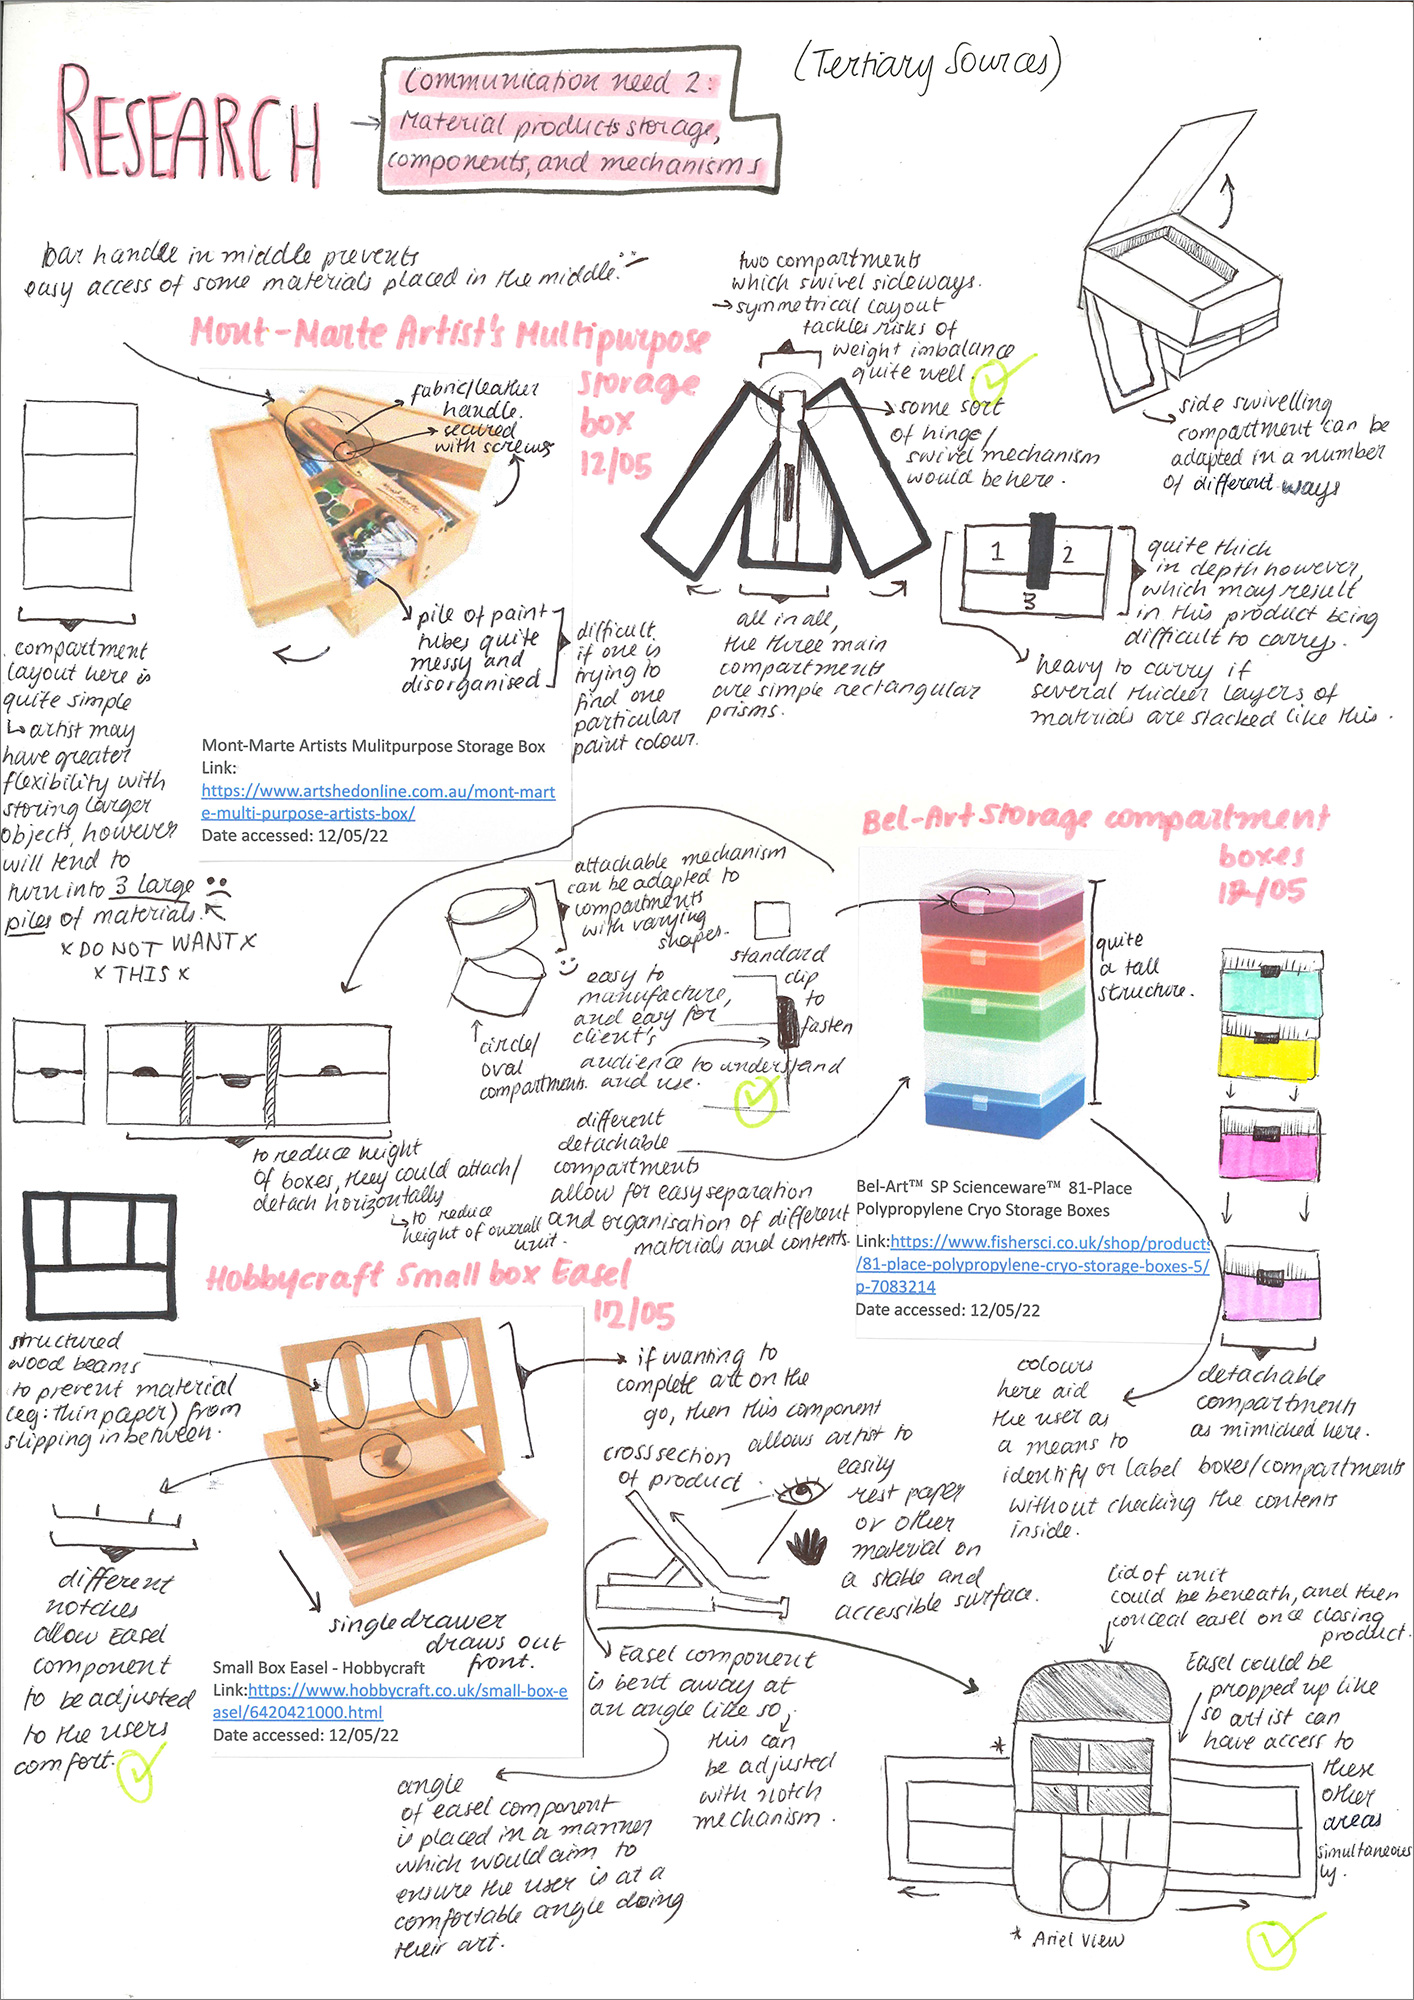 RESEARCH
Communication need 2:
Material products storage,
components, and mechanisms
(Tertiary Sources)
bar handle in middle prevents
easy access of some materials placed in the middle.
Mont-Marte Artist's Multipurpose
storage
box
12/05
fabric/leather
handle.
secured
with screws
pile of paint
tubes quite
messy and
disorganised
difficult
if one is
trying to
find one
particular
paint colour.
compartment
layout here is
quite simple
artist may
have greater
flexibility with
storing larger
objects, however
will tend to
turn into 3 large
piles of materials.
x DO NOT WANT x
x THIS x
Mont-Marte Artists Mulitpurpose Storage Box
Link:
https://www.artshedonline.com.au/mont-mart
e-multi-purpose-artists-box/
Date accessed: 12/05/22
two compartments
which swivel sideways.
→ symmetrical layout
tackles risks of
weight imbalance
quite well.
some sort
of hinge/
swivel mechanism
would be here.
all in all,
the three main
compartments
are simple rectangular
prisms.
side swivelling
compartment can be
adapted in a number
of different ways
1 2
3
quite thick
in depth however,
which may result
in this product being
difficult to carry.
heavy to carry if
several thicker layers of
materials are stacked like this.
Bel-Art Storage compartment
boxes
12/05
attachable mechanism
can be adapted to
compartments
with varying
shapes.
circle/
oval
compartments.
easy to
manufacture,
and easy for
client's
audience to understand
and use.
standard
clip
to
fasten
quite
a tall
structure.
to reduce height
of boxes, they could attach/
detach horizontally
to reduce
height of overall
unit.
different
detachable
compartments
allow for easy separation
and organisation of different
materials and contents.
Bel-Art™ SP Scienceware™ 81-Place
Polypropylene Cryo Storage Boxes
Link:https://www.fishersci.co.uk/shop/products
/81-place-polypropylene-cryo-storage-boxes-5/
p-7083214
Date accessed: 12/05/22
detachable
compartments
as mimicked here.
colours
here aid
the user as
a means to
identify or label boxes/compartments
without checking the contents
inside.
Hobbycraft Small box Easel
12/05
structured
wood beams
to prevent material
(eg: thin paper) from
slipping in between.
different
notches
allow Easel
component
to be adjusted
to the users
comfort.
single drawer
draws out
front.
Small Box Easel - Hobbycraft
Link:https://www.hobbycraft.co.uk/small-box-e
asel/6420421000.html
Date accessed: 12/05/22
if wanting to
complete art on the
go, then this component
allows artist to
easily
rest paper
or other
material on
a stable and
accessible surface.
cross section
of product
Easel component
is bent away at
an angle like so,
this can
be adjusted
with notch
mechanism.
angle
of easel component
is placed in a manner
which would aim to
ensure the user is at a
comfortable angle doing
their art.
lid of unit
could be beneath, and then
conceal easel once closing
product.
Easel could be
propped up like
so artist can
have access to
these
other
areas
simultaneous
ly.
*
* Ariel View